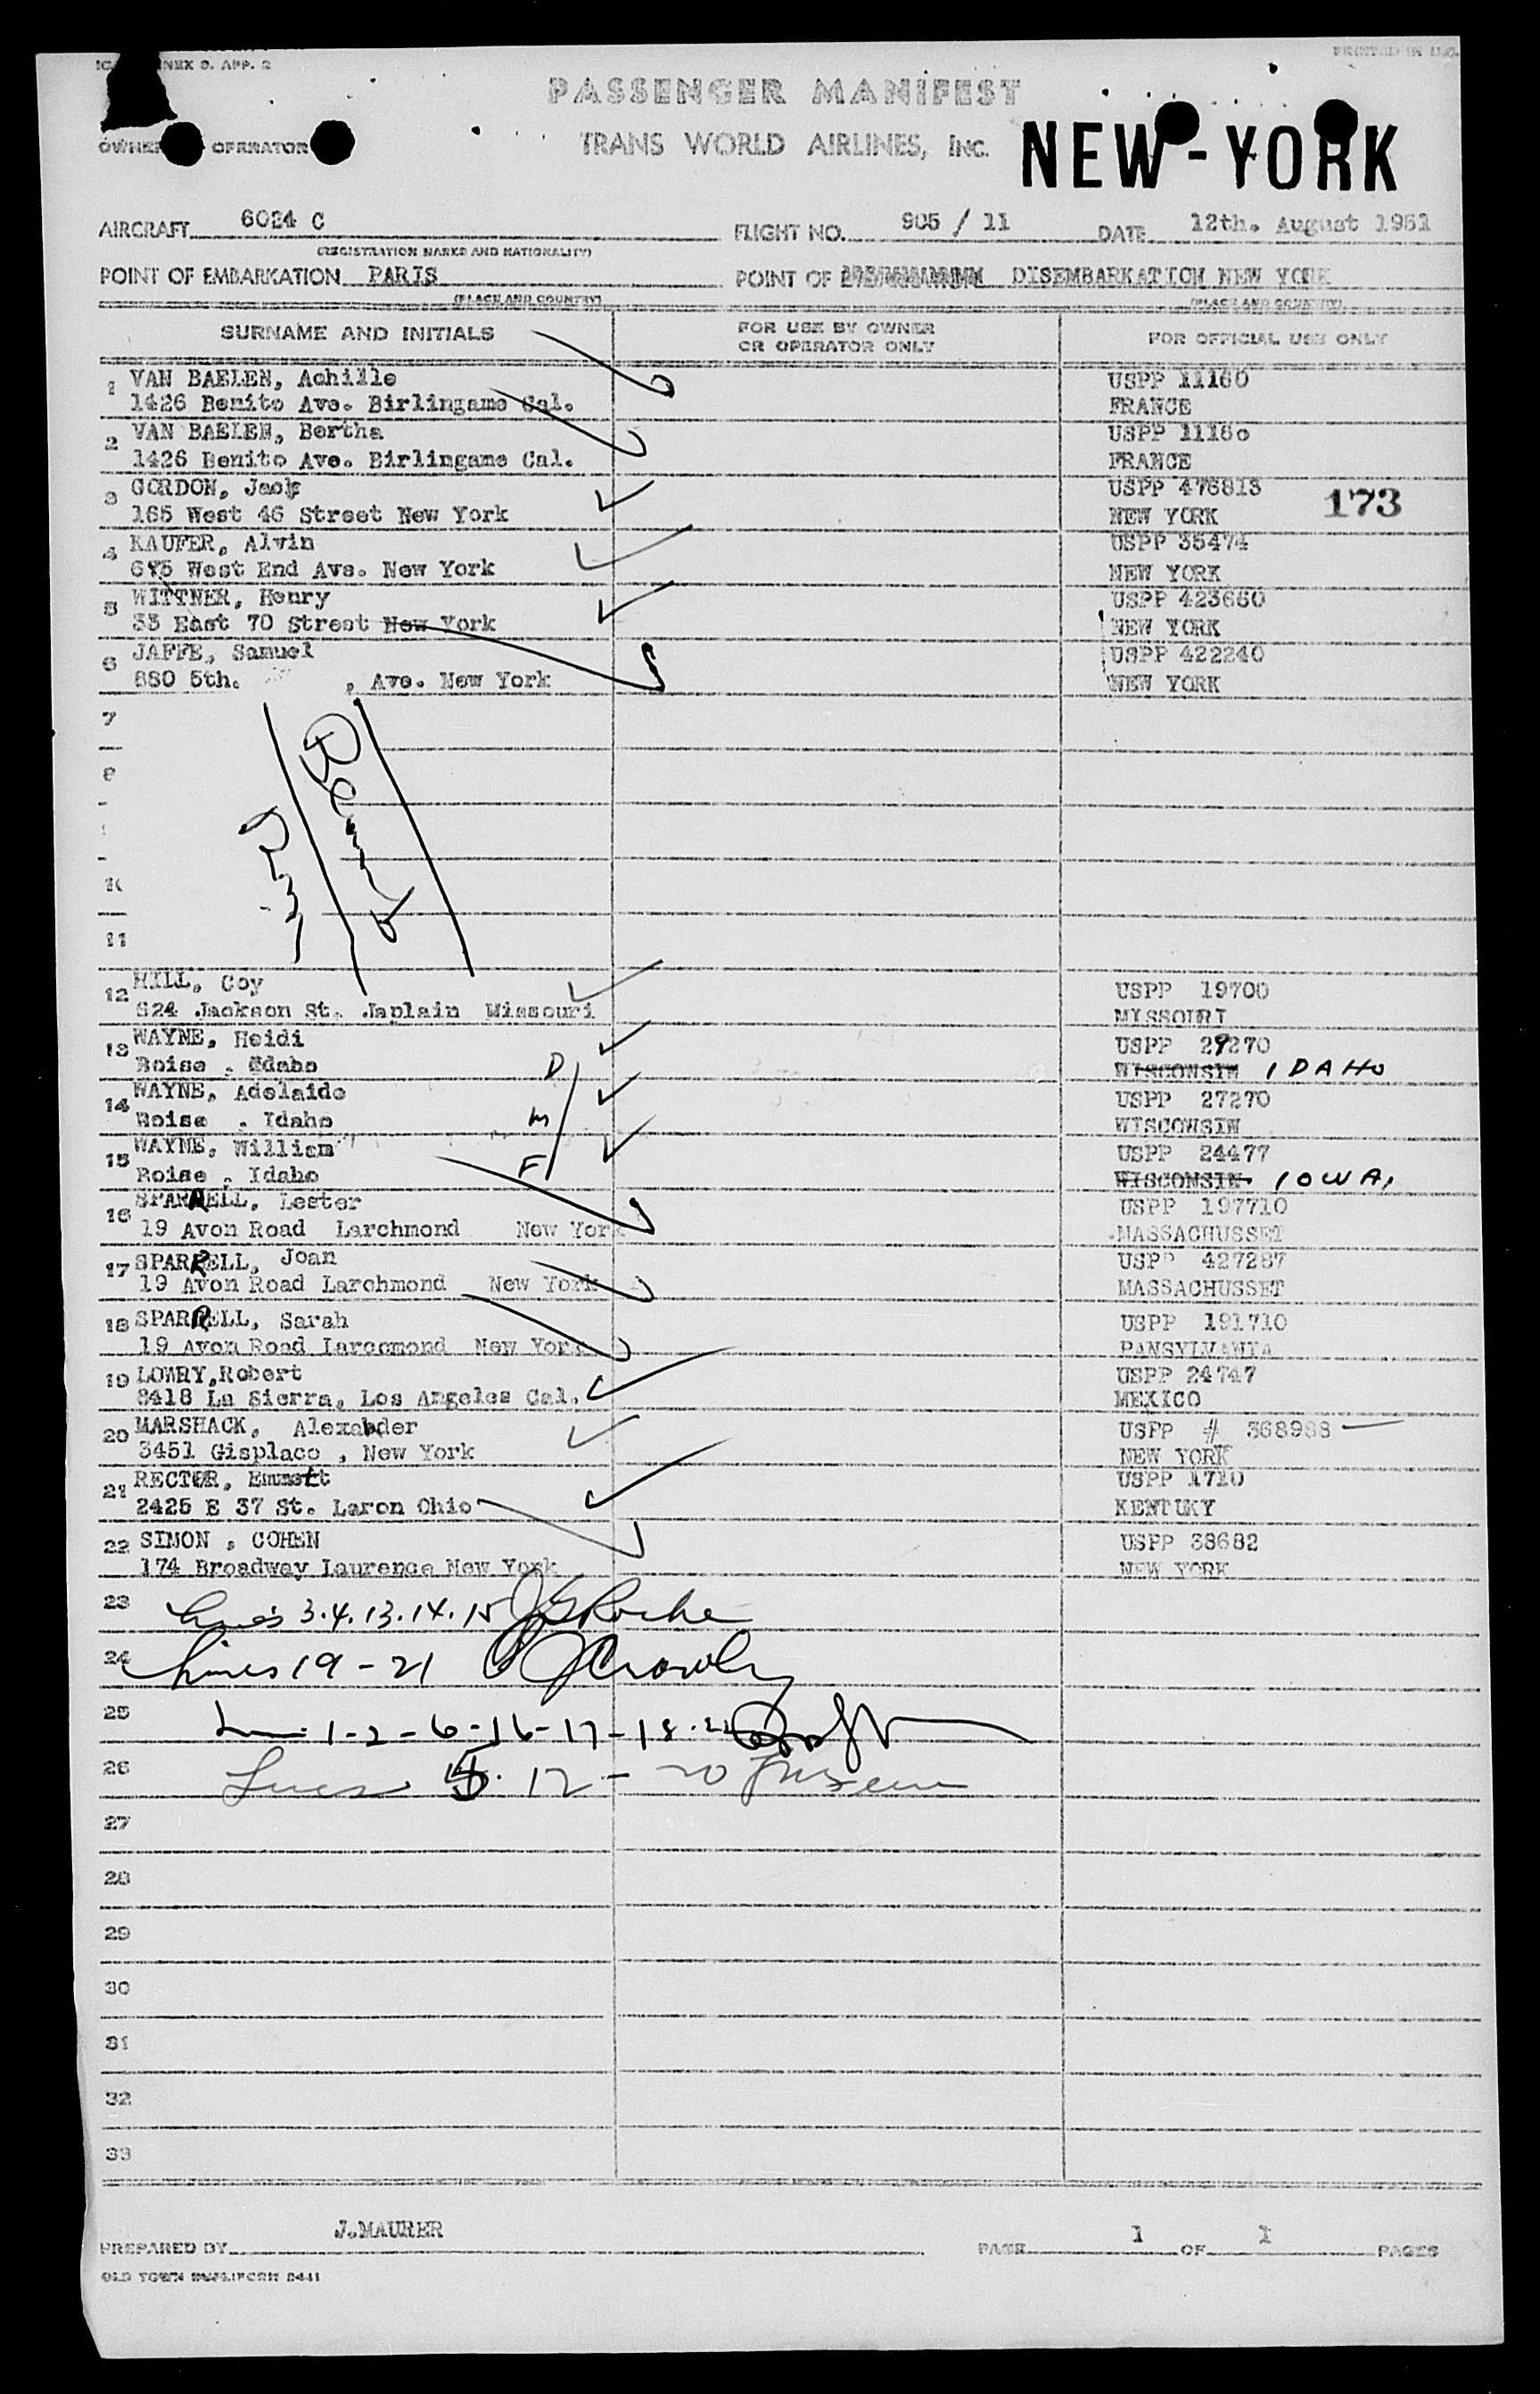 ANNEX 9. APP. 2
PRINTED IN U.S.
PASSENGER MANIFEST
OWNER OR OPERATOR
TRANS WORLD AIRLINES, INC.
NEW-YORK
AIRCRAFT 6024 C
FLIGHT NO. 905 / 11
DATE 12th. August 1951
(REGISTRATION MARKS AND NATIONALITY)
POINT OF EMBARKATION PARIS
POINT OF DISEMBARKATION NEW YORK
(PLACE AND COUNTRY)
(PLACE AND COUNTRY)
SURNAME AND INITIALS
FOR USE BY OWNER
OR OPERATOR ONLY
FOR OFFICIAL USE ONLY
1 VAN BAELEN, Achille USPP 11160
1426 Benito Ave. Birlingame Cal. FRANCE
2 VAN BAELEN, Bertha USPP 11160
1426 Benito Ave. Birlingame Cal. FRANCE
3 GORDON, Jack USPP 476813
165 West 46 Street New York NEW YORK
173
4 KAUFER, Alvin USPP 35474
675 West End Ave. New York NEW YORK
5 WITTNER, Henry USPP 423660
33 East 70 Street New York NEW YORK
6 JAFFE, Samuel USPP 422240
880 5th. , Ave. New York NEW YORK
7
8
10
11
12 HILL, Coy USPP 19700
624 Jackson St. Japlain Missouri MISSOURI
13 WAYNE, Heidi USPP 29270
Boise , Idaho D WISCONSIN IDAHO
14 WAYNE, Adelaide USPP 27270
Boise , Idaho M WISCONSIN
15 WAYNE, William USPP 24477
Boise , Idaho F WISCONSIN. IOWA,
16 SPARRELL, Lester USPP 197710
19 Avon Road Larchmond New York MASSACHUSSET
17 SPARRELL, Joan USPP 427287
19 Avon Road Larchmond New York MASSACHUSSET
18 SPARRELL, Sarah USPP 191710
19 Avon Road Larcomond New York PANSYLVANIA
19 LOWRY,Robert USPP 24747
8418 La Sierra, Los Angeles Cal. MEXICO
20 MARSHACK, Alexander USPP # 368988
3451 Gisplace , New York NEW YORK
21 RECTOR, Emmett USPP 1710
2425 E 37 St. Laron Ohio KENTUKY
22 SIMON , COHEN USPP 38682
174 Broadway Laurence New York NEW YORK
23 Lines 3.4.13.14.15 JG Roche
24 Lines 19-21 J Crowley
25 1-2-6-16-17-18.22
26 Lines 5. 12 - 20
27
28
29
30
31
32
33
PREPARED BY J.MAURER
PAGE 1 OF 1 PAGES
OLD TOWN